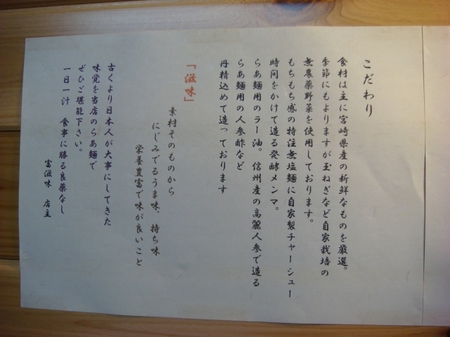 こだわり
食材は主に宮崎県産の新鮮なものを厳選。
季節にもよりますが玉ねぎなど自家栽培の
無農薬野菜を使用しております。
もちもち感の特注無塩麺に自家製チャーシュー
時間をかけて造る発酵メンマ。
らあ麺用のラー油。信州産の高麗人参で造る
らあ麺用の人参酢など
丹精込めて造っております
「滋味」
素材そのものから
にじみでるうま味、持ち味
栄養豊富で味が良いこと
古くより日本人が大事にしてきた
味覚を当店のらあ麺で
ぜひご堪能下さい。
一日一汁 食事に勝る良薬なし
富滋味 店主